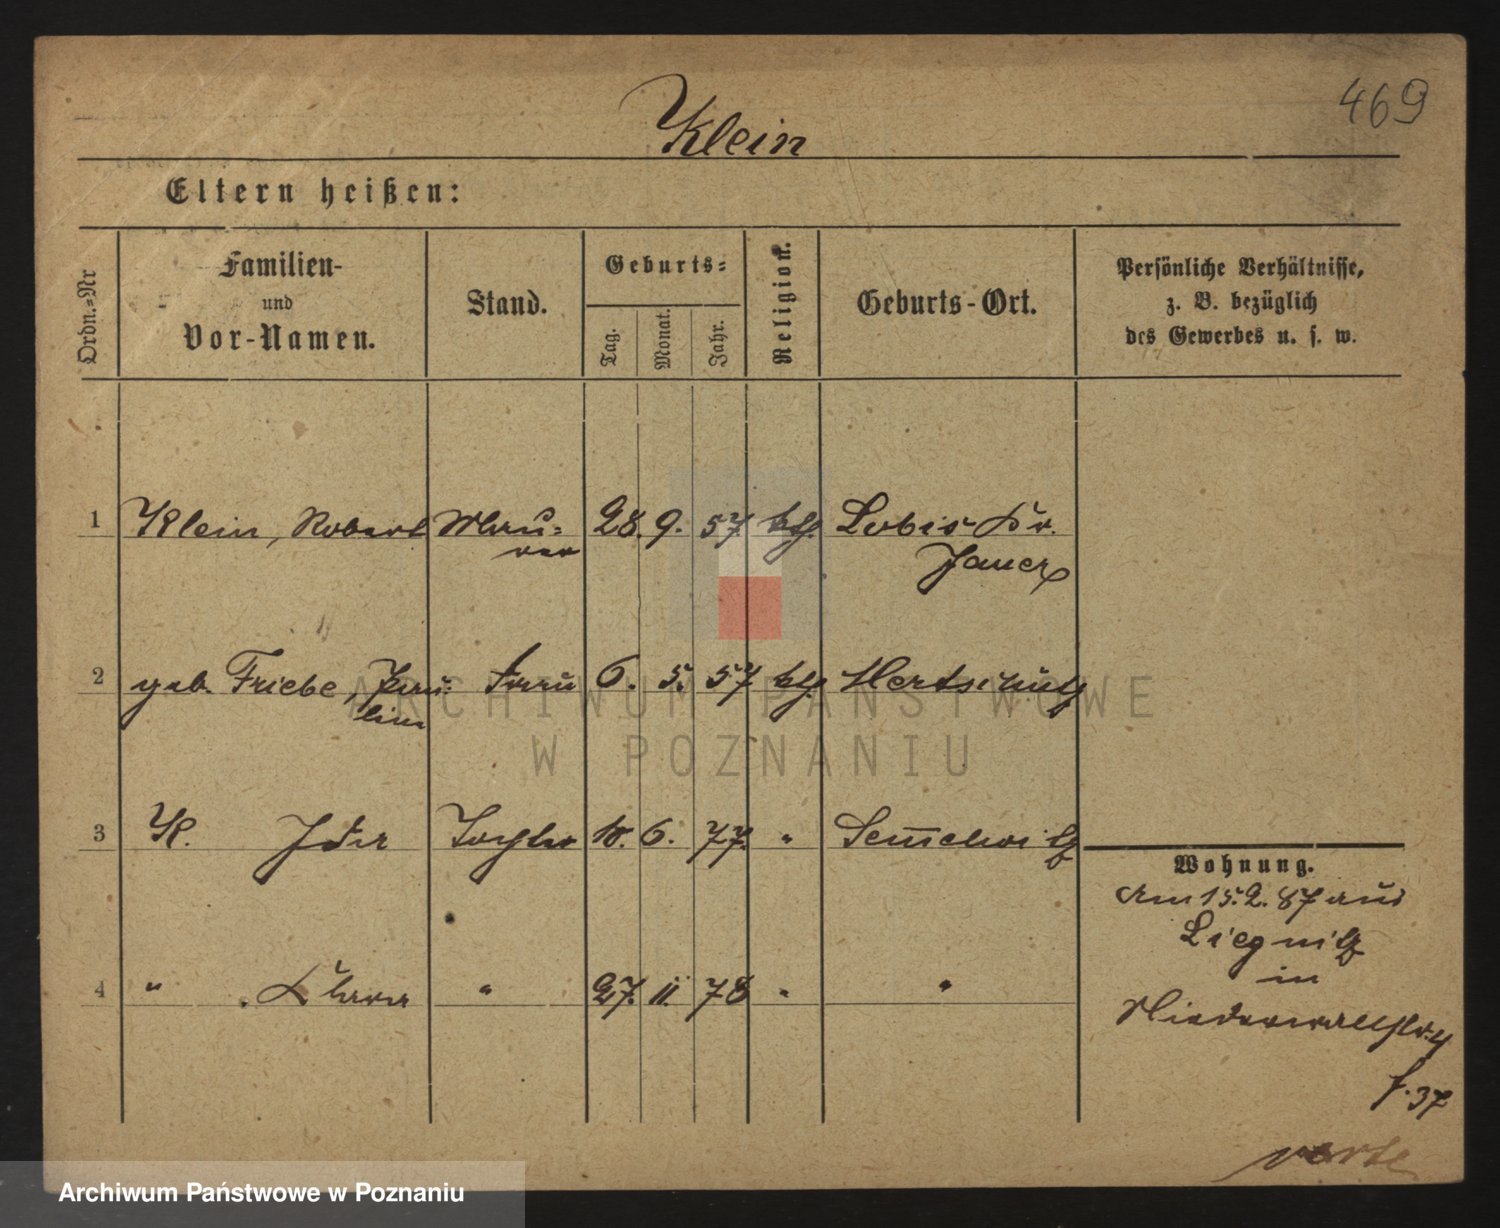 469
Klein
Eltern heißen:
Ordn.=Nr
Familien-
und
Vor-Namen.
Stand.
Geburts=
Tag.
Monat.
Jahr.
Religion.
Geburts-Ort.
Persönliche Verhältnisse,
z. B. bezüglich
des Gewerbes u. s. w.
1 Klein, Robert Mau= 28. 9. 57. kth. Lobis Kr.
rer Jauer
2 geb. Friebe, Pau= Frau 6. 5. 57 kth.
line
3 K. Ida Tochter 10. 6. 77. "
Wohnung.
Am 15.2.87 aus
4 " " Klara " 27. 11. 78 " "
Liegnitz
in
Niederwallstr. 4
f. 37
verte
ARCHIWUM PAŃSTWOWE
W POZNANIU
Archiwum Państwowe w Poznaniu